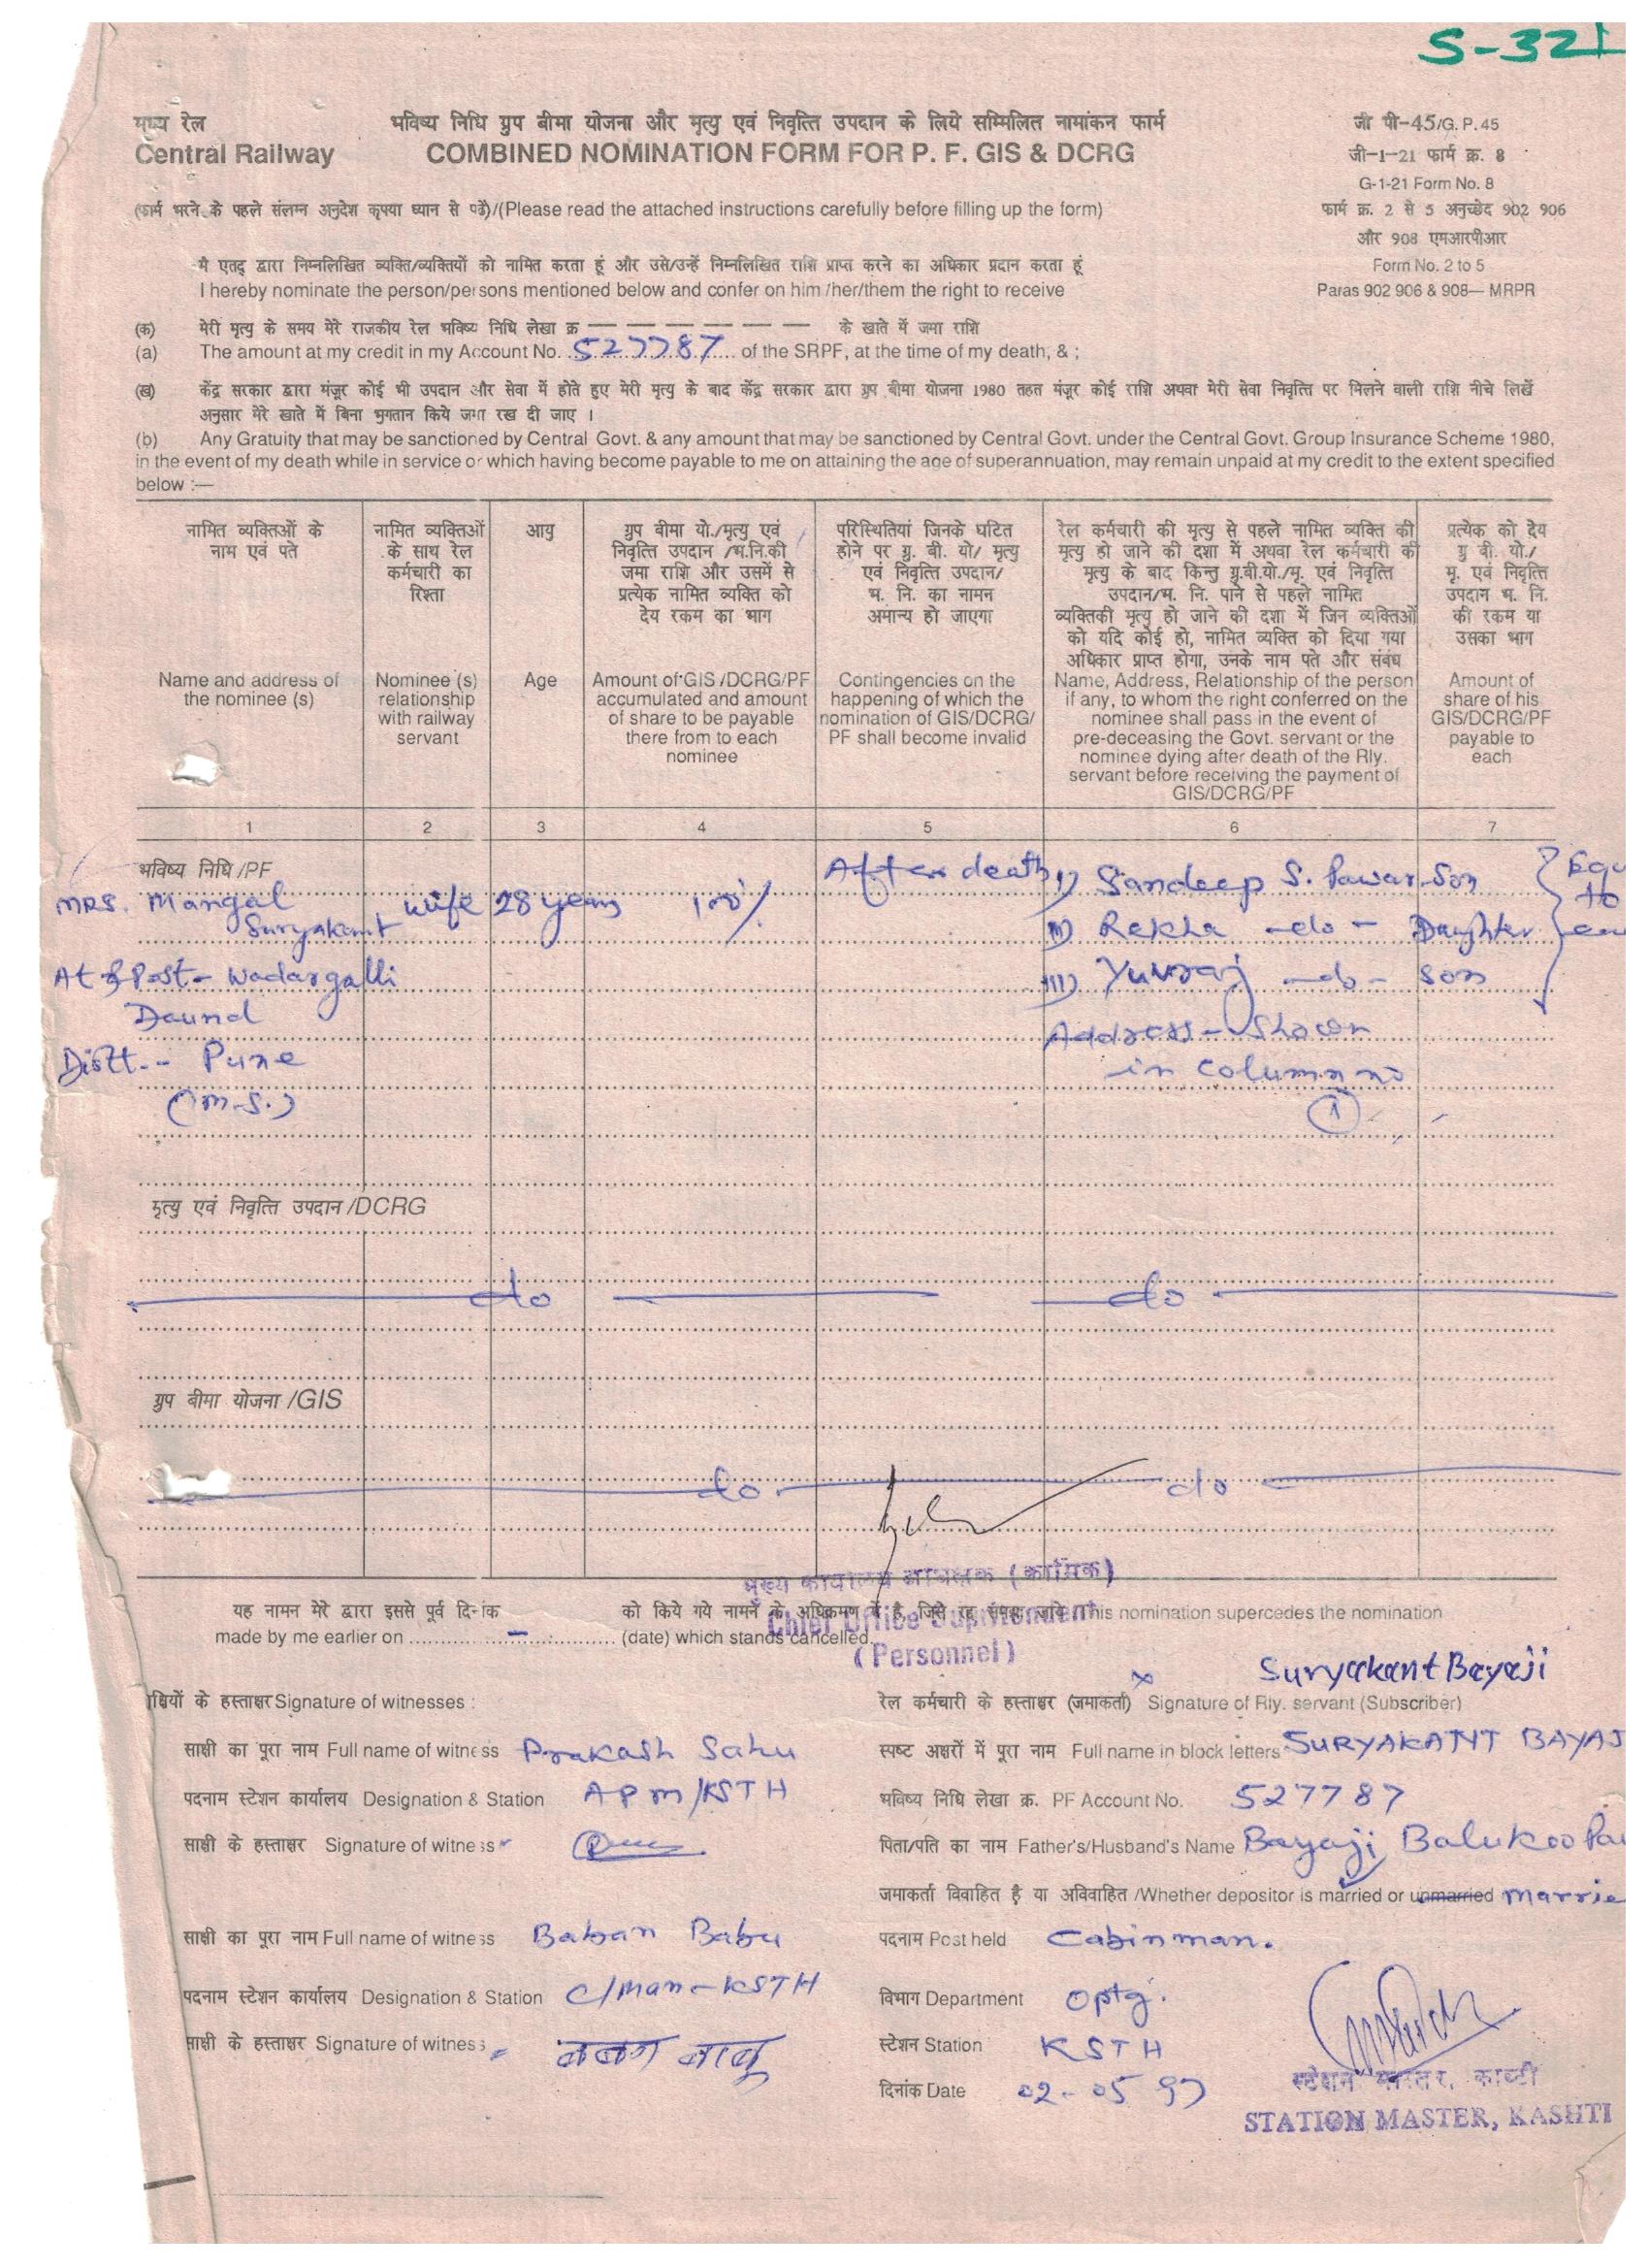 S-321
मध्य रेल
Central Railway
भविष्य निधि ग्रुप बीमा योजना और मृत्यु एवं निवृत्ति उपदान के लिये सम्मिलित नामांकन फार्म
COMBINED NOMINATION FORM FOR P. F. GIS & DCRG
जी पी-45/G. P. 45
जी-1-21 फार्म क्र. 8
G-1-21 Form No. 8
फार्म क्र. 2 से 5 अनुच्छेद 902 906
और 908 एमआरपीआर
Form No. 2 to 5
Paras 902 906 & 908— MRPR
(फार्म भरने के पहले संलग्न अनुदेश कृपया ध्यान से पढें)/(Please read the attached instructions carefully before filling up the form)
मै एतद् द्वारा निम्नलिखित व्यक्ति/व्यक्तियों को नामित करता हूं और उसे/उन्हें निम्नलिखित राशि प्राप्त करने का अधिकार प्रदान करता हूं
I hereby nominate the person/persons mentioned below and confer on him /her/them the right to receive
(क) मेरी मृत्यु के समय मेरे राजकीय रेल भविष्य निधि लेखा क्र — — — — — — — के खाते में जमा राशि
(a) The amount at my credit in my Account No. 527787 of the SRPF, at the time of my death, & ;
(ख) केंद्र सरकार द्वारा मंजूर कोई भी उपदान और सेवा में होते हुए मेरी मृत्यु के बाद केंद्र सरकार द्वारा ग्रुप बीमा योजना 1980 तहत मंजूर कोई राशि अथवा मेरी सेवा निवृत्ति पर मिलने वाली राशि नीचे लिखें
अनुसार मेरे खाते में बिना भुगतान किये जमा रख दी जाए ।
(b) Any Gratuity that may be sanctioned by Central Govt. & any amount that may be sanctioned by Central Govt. under the Central Govt. Group Insurance Scheme 1980,
in the event of my death while in service or which having become payable to me on attaining the age of superannuation, may remain unpaid at my credit to the extent specified
below :—
नामित व्यक्तिओं के
नाम एवं पते
Name and address of
the nominee (s)
नामित व्यक्तिओं
के साथ रेल
कर्मचारी का
रिश्ता
Nominee (s)
relationship
with railway
servant
आयु
Age
ग्रुप बीमा यो./मृत्यु एवं
निवृत्ति उपदान /भ.नि.की
जमा राशि और उसमें से
प्रत्येक नामित व्यक्ति को
देय रकम का भाग
Amount of GIS /DCRG/PF
accumulated and amount
of share to be payable
there from to each
nominee
परिस्थितियां जिनके घटित
होने पर ग्रु. बी. यो/ मृत्यु
एवं निवृत्ति उपदान/
भ. नि. का नामन
अमान्य हो जाएगा
Contingencies on the
happening of which the
nomination of GIS/DCRG/
PF shall become invalid
रेल कर्मचारी की मृत्यु से पहले नामित व्यक्ति की
मृत्यु हो जाने की दशा में अथवा रेल कर्मचारी की
मृत्यु के बाद किन्तु ग्रु.बी.यो./मृ. एवं निवृत्ति
उपदान/भ. नि. पाने से पहले नामित
व्यक्तिकी मृत्यु हो जाने की दशा में जिन व्यक्तिओं
को यदि कोई हो, नामित व्यक्ति को दिया गया
अधिकार प्राप्त होगा, उनके नाम पते और संबंध
Name, Address, Relationship of the person
if any, to whom the right conferred on the
nominee shall pass in the event of
pre-deceasing the Govt. servant or the
nominee dying after death of the Rly.
servant before receiving the payment of
GIS/DCRG/PF
प्रत्येक को देय
ग्रु बी. यो./
मृ. एवं निवृत्ति
उपदान भ. नि.
की रकम या
उसका भाग
Amount of
share of his
GIS/DCRG/PF
payable to
each
1 2 3 4 5 6 7
भविष्य निधि /PF
MRS. Mangal
Suryakant
At & Post- Wadargalli
Daund
Distt.- Pune
(M.S.)
wife
28 years
100%
After death
I) Sandeep S. Pawar Son
II) Rekha -do- Daughter
III) Yuvraj -do- Son
Address - Shown
in column no
1
Equ
to
मृत्यु एवं निवृत्ति उपदान /DCRG
do do
ग्रुप बीमा योजना /GIS
do do
मुख्य कार्यालय अधिक्षक (कार्मिक)
Chief Office Supritendent
(Personnel)
यह नामन मेरे द्वारा इससे पूर्व दिनांक को किये गये नामनें के अधिक्रमण में है, जिसे रद्द समझा जाये This nomination supercedes the nomination
made by me earlier on - (date) which stands cancelled.
Suryakant Bayaji
Signature of witnesses :
रेल कर्मचारी के हस्ताक्षर (जमाकर्ता) x Signature of Rly. servant (Subscriber)
साक्षी का पूरा नाम Full name of witness Prakash Sahu
स्पष्ट अक्षरों में पूरा नाम Full name in block letters SURYAKANT BAYAJ
पदनाम स्टेशन कार्यालय Designation & Station APM/KSTH
भविष्य निधि लेखा क्र. PF Account No. 527787
साक्षी के हस्ताक्षर Signature of witness
पिता/पति का नाम Father's/Husband's Name Bayaji Balukoo Pa
जमाकर्ता विवाहित है या अविवाहित /Whether depositor is married or unmarried Marrie
साक्षी का पूरा नाम Full name of witness Baban Babu
पदनाम Post held Cabinman.
पदनाम स्टेशन कार्यालय Designation & Station C/Man-KSTH
विभाग Department Optg.
साक्षी के हस्ताक्षर Signature of witness बबन बाबू
स्टेशन Station KSTH
दिनांक Date 02-05 97
स्टेशन मास्टर, काष्टी
STATION MASTER, KASHTI